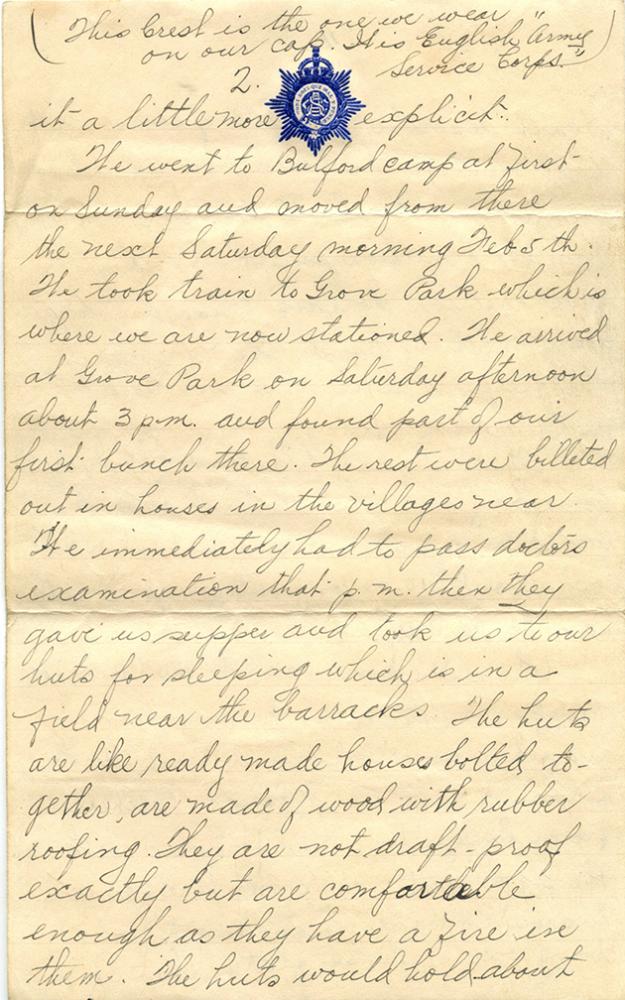 (This Crest is the one we wear
on our cap. It is English "Army
Service Corps.")
2.
it a little more explicit.
We went to Bulford camp at first
on Sunday and moved from there
the next Saturday morning Feb 5th.
We took train to Grove Park which is
where we are now stationed. We arrived
at Grove Park on Saturday afternoon
about 3 p.m. and found part of our
first bunch there. The rest were billeted
out in houses in the villages near
We immediately had to pass doctors
examination that p.m. then they
gave us supper and took us to our
huts for sleeping which is in a
field near the barracks. The huts
are like ready made houses bolted to-
gether, are made of wood with rubber
roofing. They are not draft-proof
exactly but are comfortable
enough as they have a fire in
them. The huts would hold about